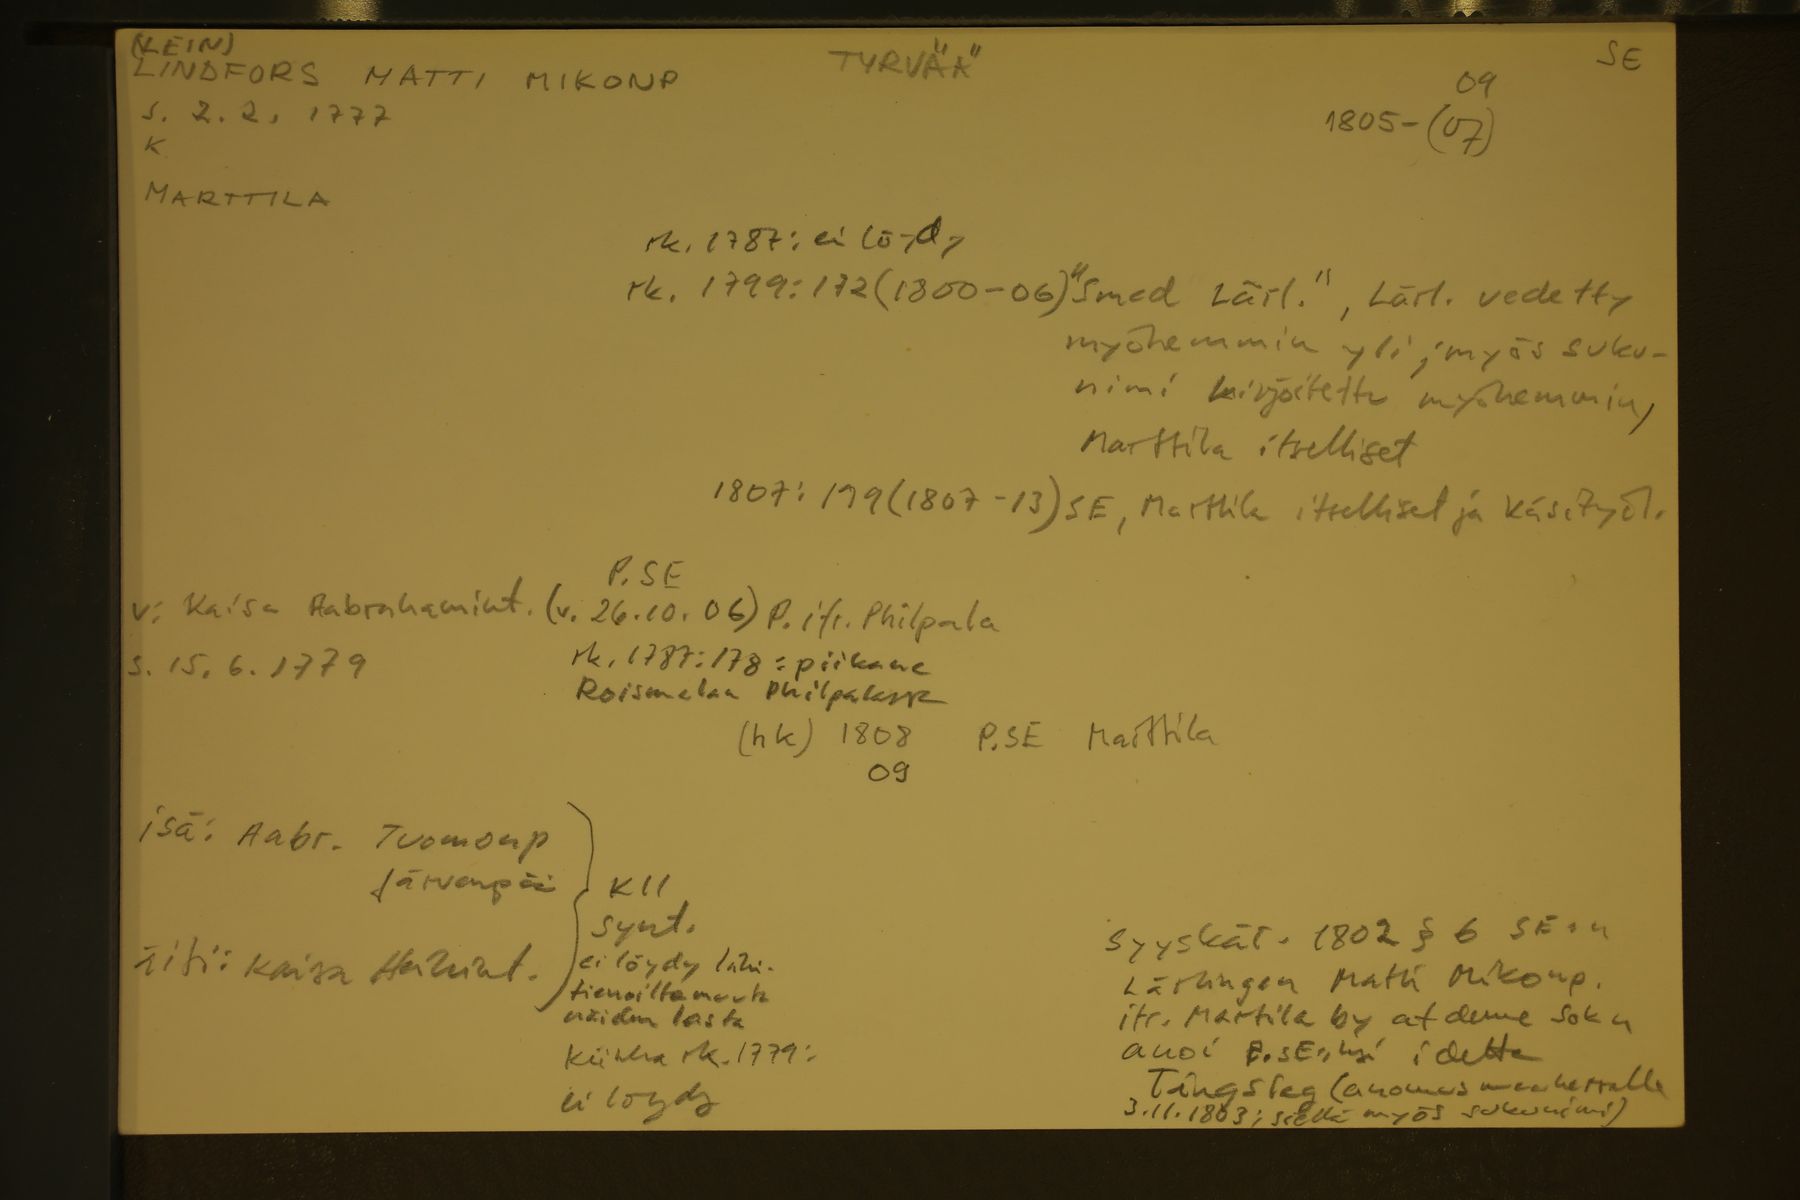 (LEIN)
LINDFORS MATTI MIKONP
TYRVÄÄ
SE
s. 2.2. 1777
09
1805-(07)
K
MARTTILA
rk. 1787: ei löydy
rk. 1799: 172 (1800-06) "Smed Lärl.", Lärl. vedetty
myöhemmin yli; myös suku-
nimi kirjoitettu myöhemmin,
Marttila itselliset
1807: 199 (1807-13) SE, Marttila itselliset ja käsityöl.
P.SE
v: Kaisa Aabrahamint. (v. 26.10.06) P. itr. Philpala
s. 15.6.1779
rk. 1787: 178: piikane
Roismalan Philpalassa
(hk) 1808 P.SE Marttila
09
isä: Aabr. Tuomonp
Järvenpää
KII
synt.
äiti: Kaisa Heikint.
ei löydy lähi-
tienoilta muuta
näiden lasta
Kiikka rk. 1779:
ei löydy
Syyskär. 1802 § 6 SE:n
Lärlingen Matti Mikonp.
itr. Marttila by af denne Sokn
anoi P.SE:ksi i detta
Tingslag (anomus maaherralle
3.11.1803; siellä myös sukunimi)